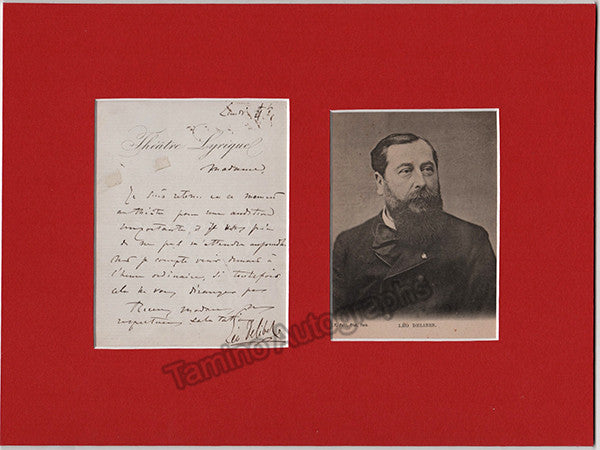 Théâtre Lyrique
Madame,
Je suis retenu en ce moment
au théâtre pour une audition
importante, & je vous prie
de ne pas m'attendre aujourd'hui
je compte venir demain à
l'heure ordinaire, si toutefois
cela ne vous dérange pas
Recevez Madame, mes
respectueuses salutations
Léo Delibes
LÉO DELIBES.
Tamino Autographs